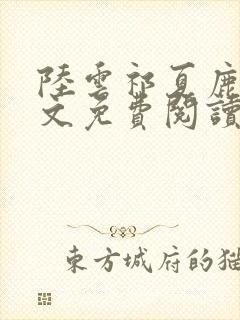 陸雲祁夏鹿
文免費閱讀
東方城府的猫